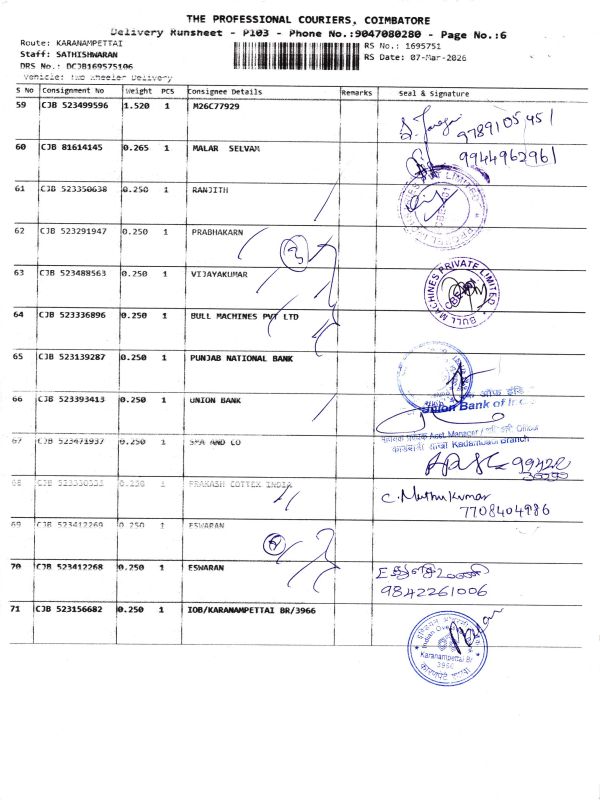 THE PROFESSIONAL COURIERS, COIMBATORE
Delivery Runsheet - P103 - Phone No.:9047080280 - Page No.:6
Route: KARANAMPETTAI RS No.: 1695751
Staff: SATHISHWARAN RS Date: 07-Mar-2026
DRS No.: DCJB169575106
Vehicle: Two Wheeler Delivery
S No Consignment No Weight PCS Consignee Details Remarks Seal & Signature
59 CJB 523499596 1.520 1 M26C77929
9789105451
60 CJB 81614145 0.265 1 MALAR SELVAM
9944962961
61 CJB 523350638 0.250 1 RANJITH
62 CJB 523291947 0.250 1 PRABHAKARN
63 CJB 523488563 0.250 1 VIJAYAKUMAR
BULL MACHINES PRIVATE LIMITED
64 CJB 523336896 0.250 1 BULL MACHINES PVT LTD
65 CJB 523139287 0.250 1 PUNJAB NATIONAL BANK
66 CJB 523393413 0.250 1 UNION BANK
Union Bank of
Asst. Manager
Kadambadi Branch
67 CJB 523471937 0.250 1 SMA AND CO
68 CJB 523330333 0.250 1 PRAKASH COTTEX INDIA
C. Muthukumar
7708404986
69 CJB 523412269 0.250 1 ESWARAN
5
70 CJB 523412268 0.250 1 ESWARAN
9842261006
71 CJB 523156682 0.250 1 IOB/KARANAMPETTAI BR/3966
Indian Overseas
Karanampettai Br
3966